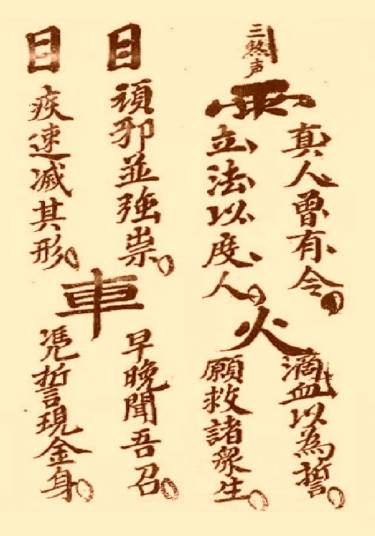 三煞声
雨
真人曾有令。
立法以度人。
火
滴血以為誓。
願救諸衆生。
日
頑邪並強祟。
日
疾速减其形。
車
早晚聞吾召。
凴誓現金身。